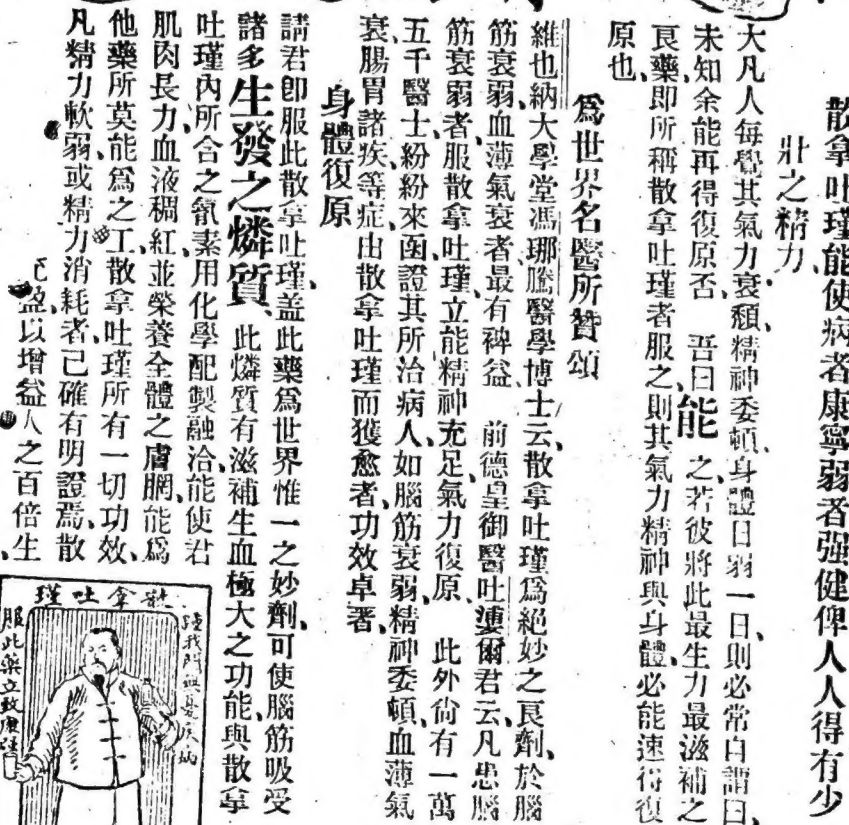 散拿吐瑾能使病者康寧弱者强健俾人人得有少
壯之精力
大凡人每覺其氣力衰頹、精神委頓、身體日弱一日、則必常自謂曰、
未知余能再得復原否 吾曰能之、若彼將此最生力最滋補之
良藥、即所稱散拿吐瑾者服之、則其氣力精神與身體、必能速行復
原也、
爲世界名醫所贊頌
維也納大學堂馮瑯騰醫學博士云、散拿吐瑾爲絕妙之良劑、於腦
筋衰弱、血薄氣衰者、最有裨益 前德皇御醫吐凄爾君云、凡患腦
筋衰弱者、服散拿吐瑾、立能精神充足、氣力復原、 此外尙有一萬
五千醫士、紛紛來函、證其所治病人、如腦筋衰弱、精神委頓、血薄氣
衰、腸胃諸疾等症、由散拿吐瑾而獲愈者、功效卓著、
身體復原
請君卽服此散拿吐瑾、盖此藥爲世界惟一之妙劑、可使腦筋吸受
諸多生發之燐質 此燐質有滋補生血極大之功能、與散拿
吐瑾內所含之氮素、用化學配製融洽、能使君
肌肉長力、血液稠紅、並榮養全體之膚膕、能爲
他藥所莫能爲之工、散拿吐瑾所有一切功效、
凡精力軟弱、或精力消耗者、已確有明證焉、散
盈以增益人之百倍生
散拿吐瑾
服此藥立致康健